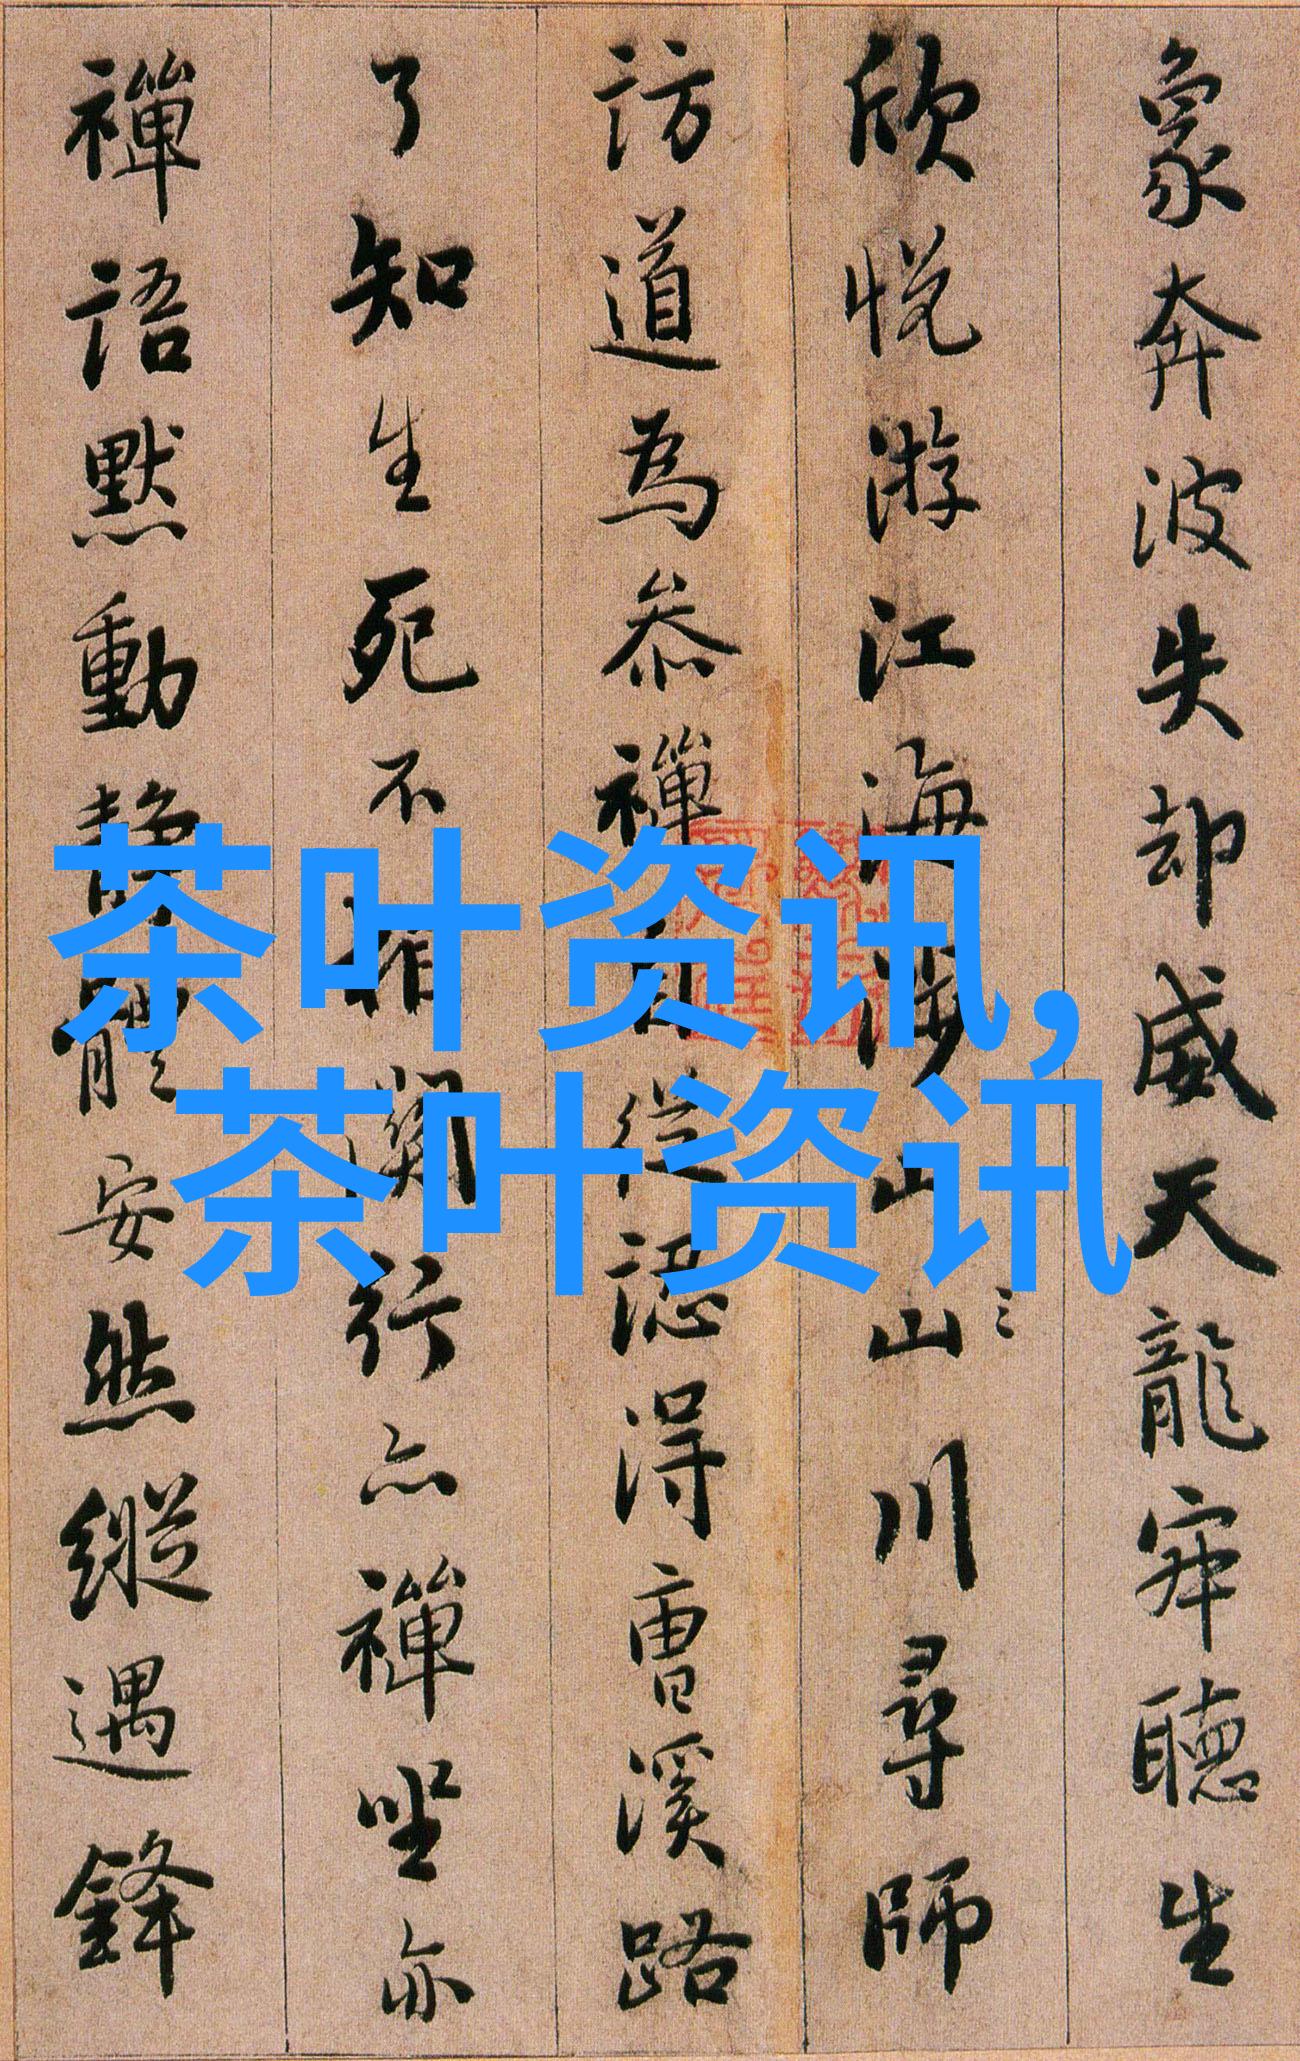 象奔波失却威天龍寂聽生
欣悅游江海涉山山川尋師
訪道為參禪自從認得曹溪路
了知生死不相關行亦禪坐亦
禪語默動靜體安然縱遇鋒
茶叶资讯,
茶叶资讯